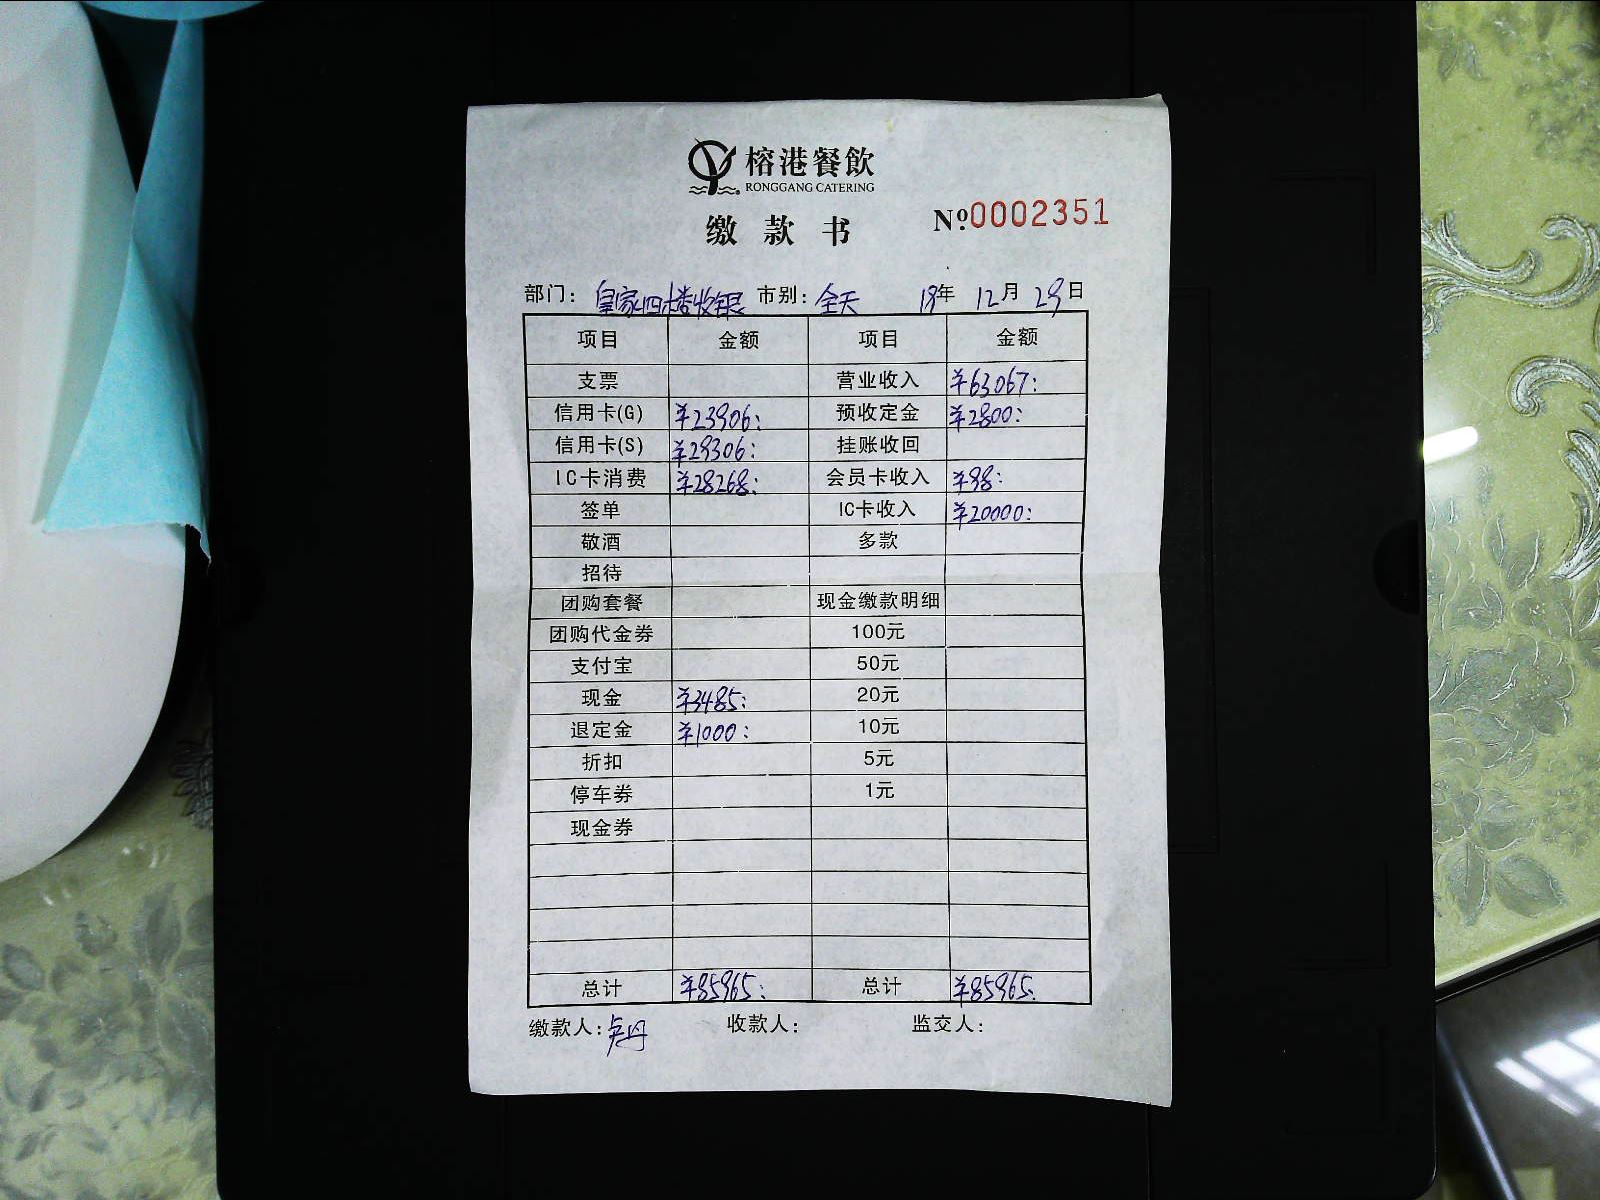 榕港餐飲
RONGGANG CATERING
缴款书 №0002351
部门：皇家四楼收银 市别：全天 19年 12月 29日
项目 金额 项目 金额
支票 营业收入 ¥63067:
信用卡(G) ¥23906: 预收定金 ¥2800:
信用卡(S) ¥29306: 挂账收回
IC卡消费 ¥28268: 会员卡收入 ¥98:
签单 IC卡收入 ¥20000:
敬酒 多款
招待
团购套餐 现金缴款明细
团购代金券 100元
支付宝 50元
现金 ¥3485: 20元
退定金 ¥1000: 10元
折扣 5元
停车券 1元
现金券
总计 ¥85965: 总计 ¥85965:
缴款人：卢丹 收款人： 监交人：